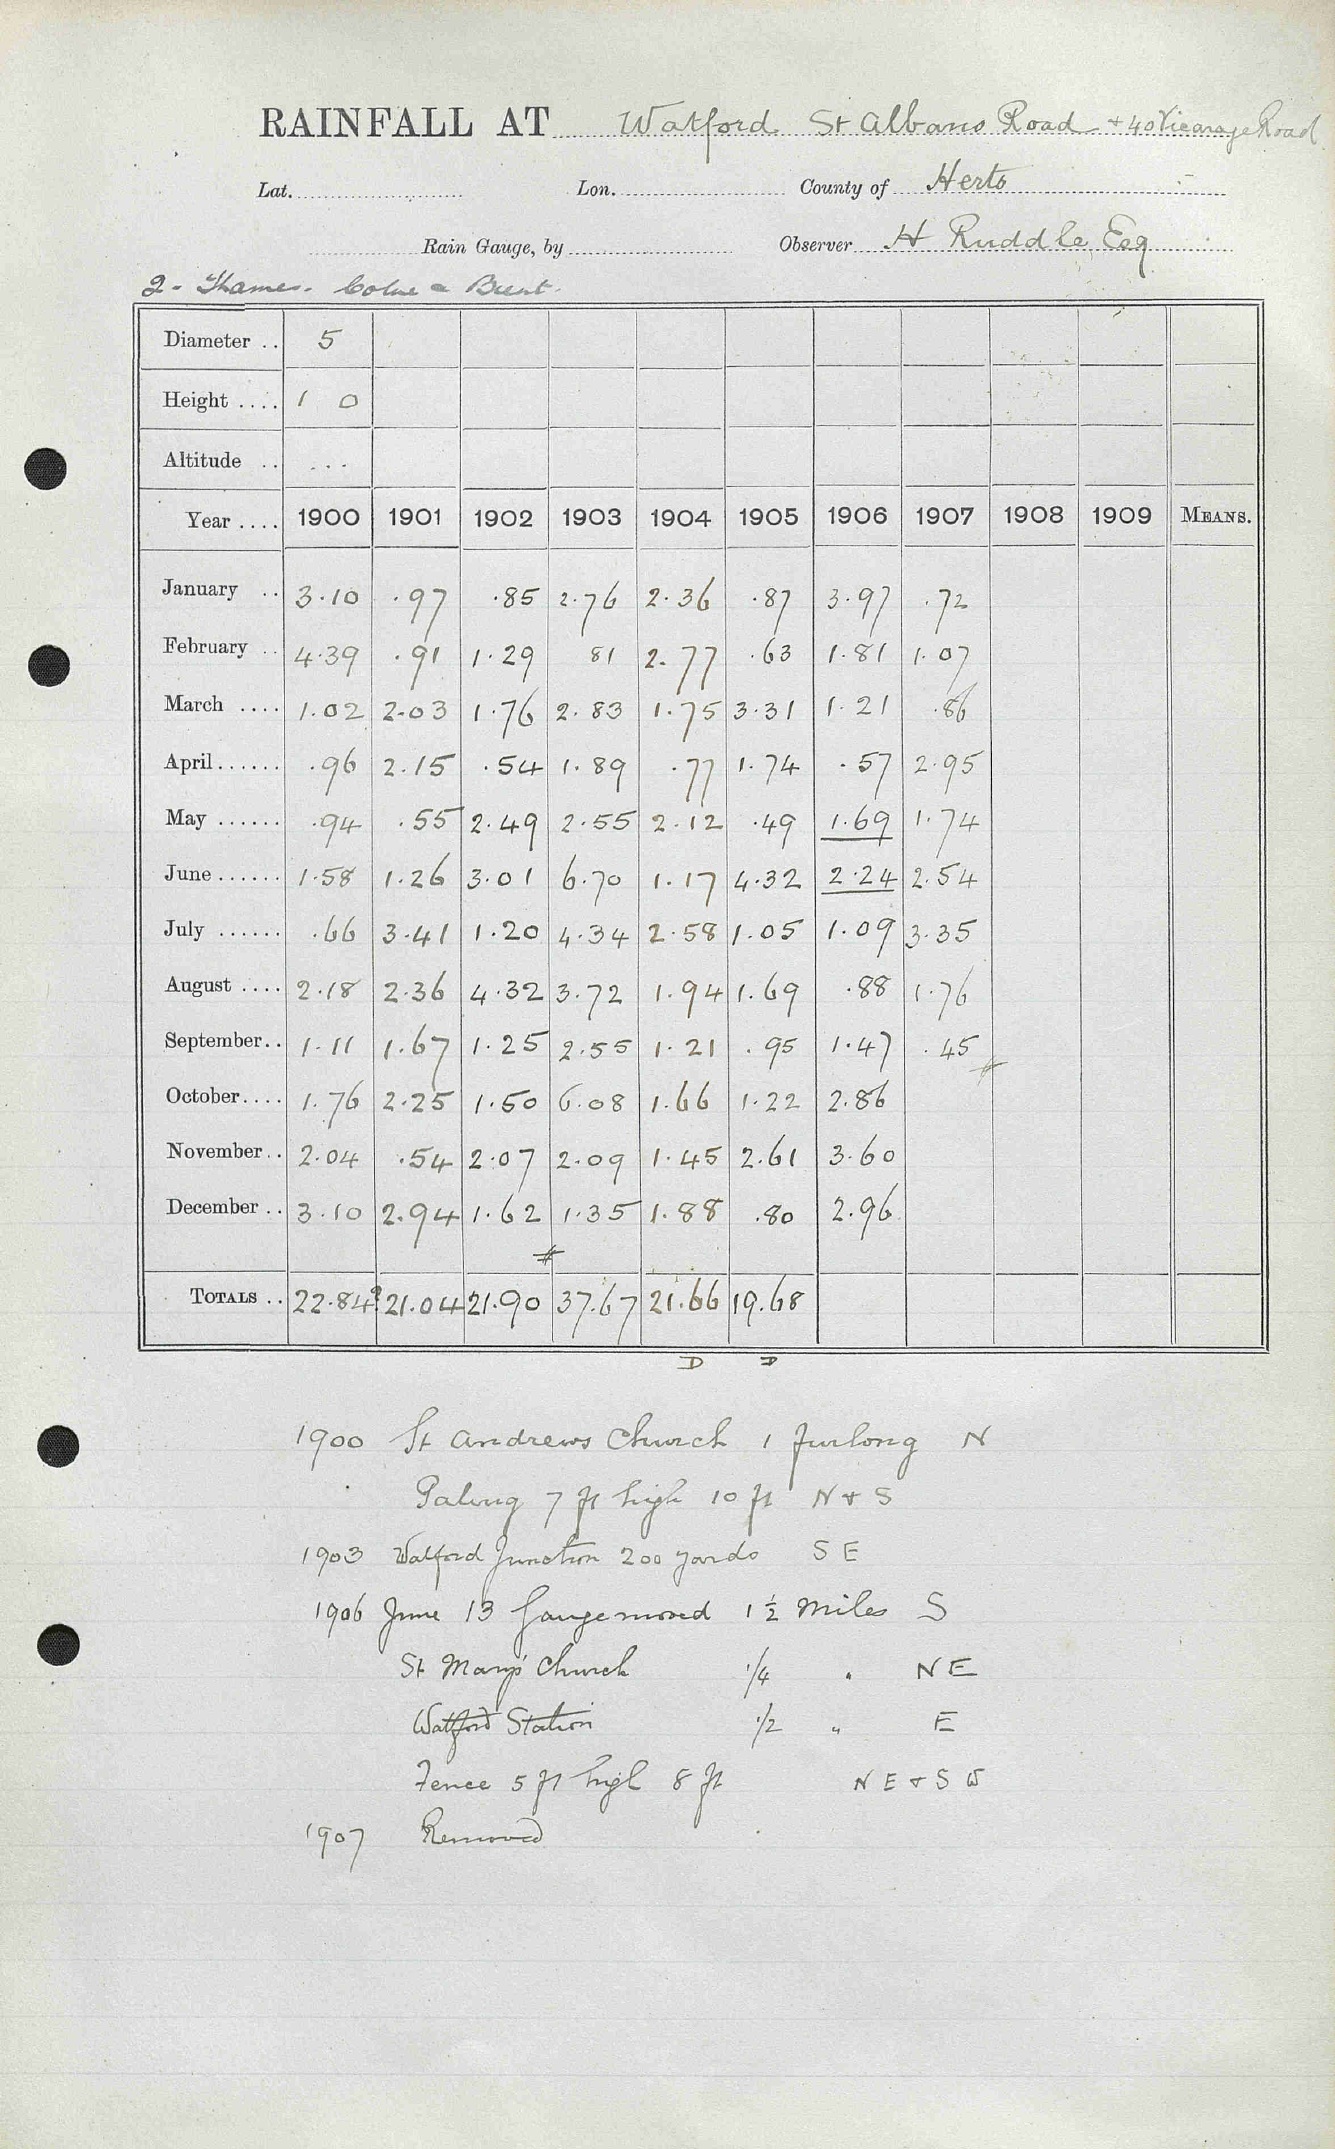 RAINFALL AT Watford St Albans Road + 40 Vicarage Road
Lat. Lon. County of Herts
Rain Gauge, by Observer H Ruddle Esq
2 - Thames. Colne & Brent.
Diameter .. 5
Height .... 1 0
Altitude .. ...
Year .... 1900 1901 1902 1903 1904 1905 1906 1907 1908 1909 MEANS.
January .. 3.10 .97 .85 2.76 2.36 .87 3.97 .72
February .. 4.39 .91 1.29 81 2.77 .63 1.81 1.07
March .... 1.02 2.03 1.76 2.83 1.75 3.31 1.21 .86
April...... .96 2.15 .54 1.89 .77 1.74 .57 2.95
May ...... .94 .55 2.49 2.55 2.12 .49 1.69 1.74
June...... 1.58 1.26 3.01 6.70 1.17 4.32 2.24 2.54
July ...... .66 3.41 1.20 4.34 2.58 1.05 1.09 3.35
August .... 2.18 2.36 4.32 3.72 1.94 1.69 .88 1.76
September.. 1.11 1.67 1.25 2.55 1.21 .95 1.47 .45
October.... 1.76 2.25 1.50 6.08 1.66 1.22 2.86
November.. 2.04 .54 2.07 2.09 1.45 2.61 3.60
December .. 3.10 2.94 1.62 1.35 1.88 .80 2.96
TOTALS .. 22.84? 21.04 21.90 37.67 21.66 19.68
D D
1900 St Andrews Church 1 furlong N
Paling 7 ft high 10 ft N + S
1903 Watford Junction 200 yards S E
1906 June 13 Gauge moved 1 1/2 Miles S
St Mary's Church 1/4 " N E
Watford Station 1/2 " E
Fence 5 ft high 8 ft N E + S W
1907 Removed